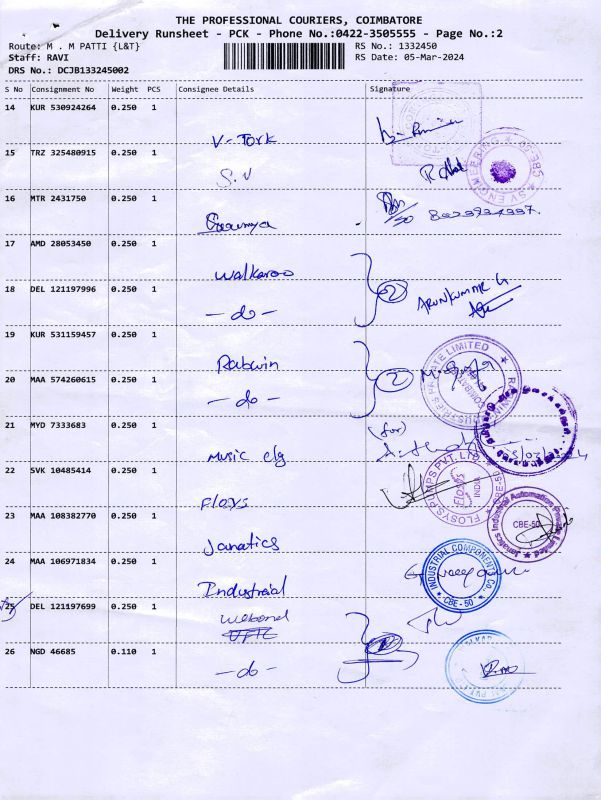 THE PROFESSIONAL COURIERS, COIMBATORE
Delivery Runsheet - PCK - Phone No.:0422-3505555 - Page No.:2
Route: M . M PATTI {L&T}
RS No.: 1332450
Staff: RAVI
RS Date: 05-Mar-2024
DRS No.: DCJB133245002
S No Consignment No Weight PCS Consignee Details Signature
14 KUR 530924264 0.250 1
V-Tork
15 TRZ 325480915 0.250 1
S.V
SV ENGINEERING CBE-50
16 MTR 2431750 0.250 1
Sowmya
17 AMD 28053450 0.250 1
Walkaroo
2
18 DEL 121197996 0.250 1
ARUNKUMAR G
- do -
19 KUR 531159457 0.250 1
Rabwin
2
20 MAA 574260615 0.250 1
- do -
21 MYD 7333683 0.250 1
(for)
Music clg
22 SVK 10485414 0.250 1
Floys
FLOSYS PUMPS PVT. LTD. INDIA
23 MAA 108382770 0.250 1
Janatics
Janatics Industrial Automation Private Limited CBE-50
24 MAA 106971834 0.250 1
Industrial
INDUSTRIAL COMPONENTS CO., CBE-50
25 DEL 121197699 0.250 1
26 NGD 46685 0.110 1
- do -